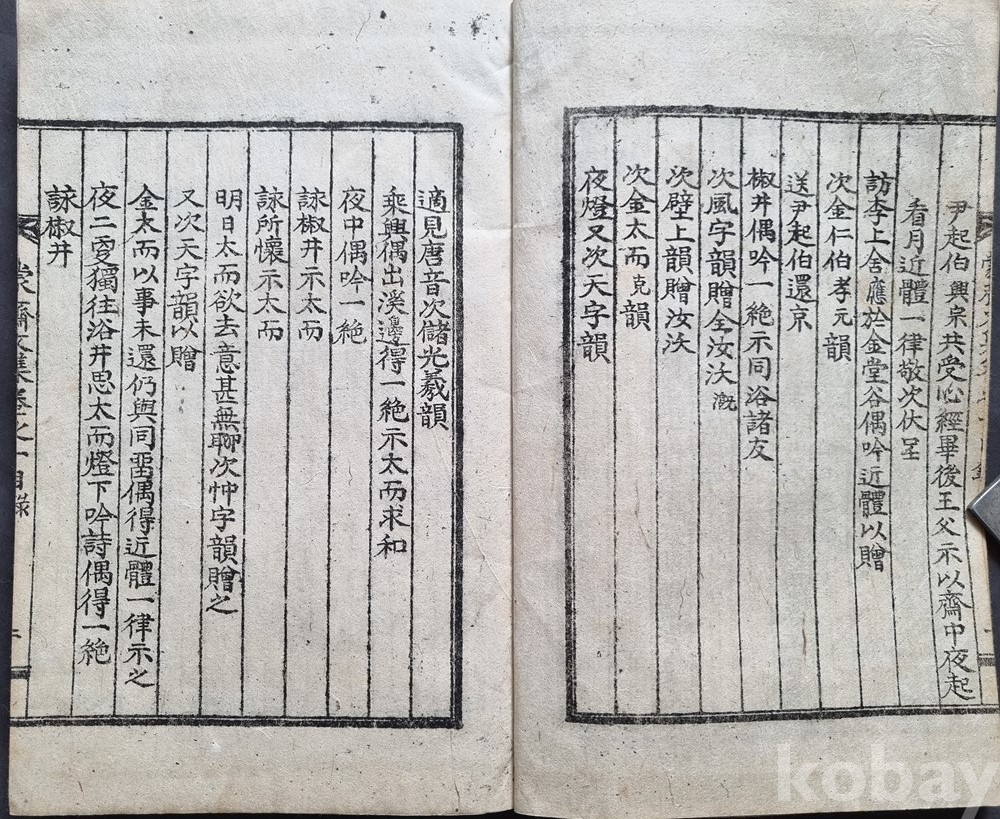 尹起伯興宗共受心經畢後王父示以齋中夜起
看月近體一律敬次伏呈
訪李上舍應於金堂谷偶吟近體以贈
次金仁伯孝元韻
送尹起伯還京
椒井偶吟一絶示同浴諸友
次風字韻贈金汝沃漑
次壁上韻贈汝沃
次金太而克韻
夜燈又次天字韻
適見唐音次儲光羲韻
乘興偶出溪邊得一絶示太而求和
夜中偶吟一絶
詠椒井示太而
詠所懷示太而
明日太而欲去意甚無聊次忡字韻贈之
又次天字韻以贈
金太而以事未還仍與同留偶得近體一律示之
夜二更獨往浴井思太而燈下吟詩偶得一絶
詠椒井
蒙齋文集卷之一目錄
kobay